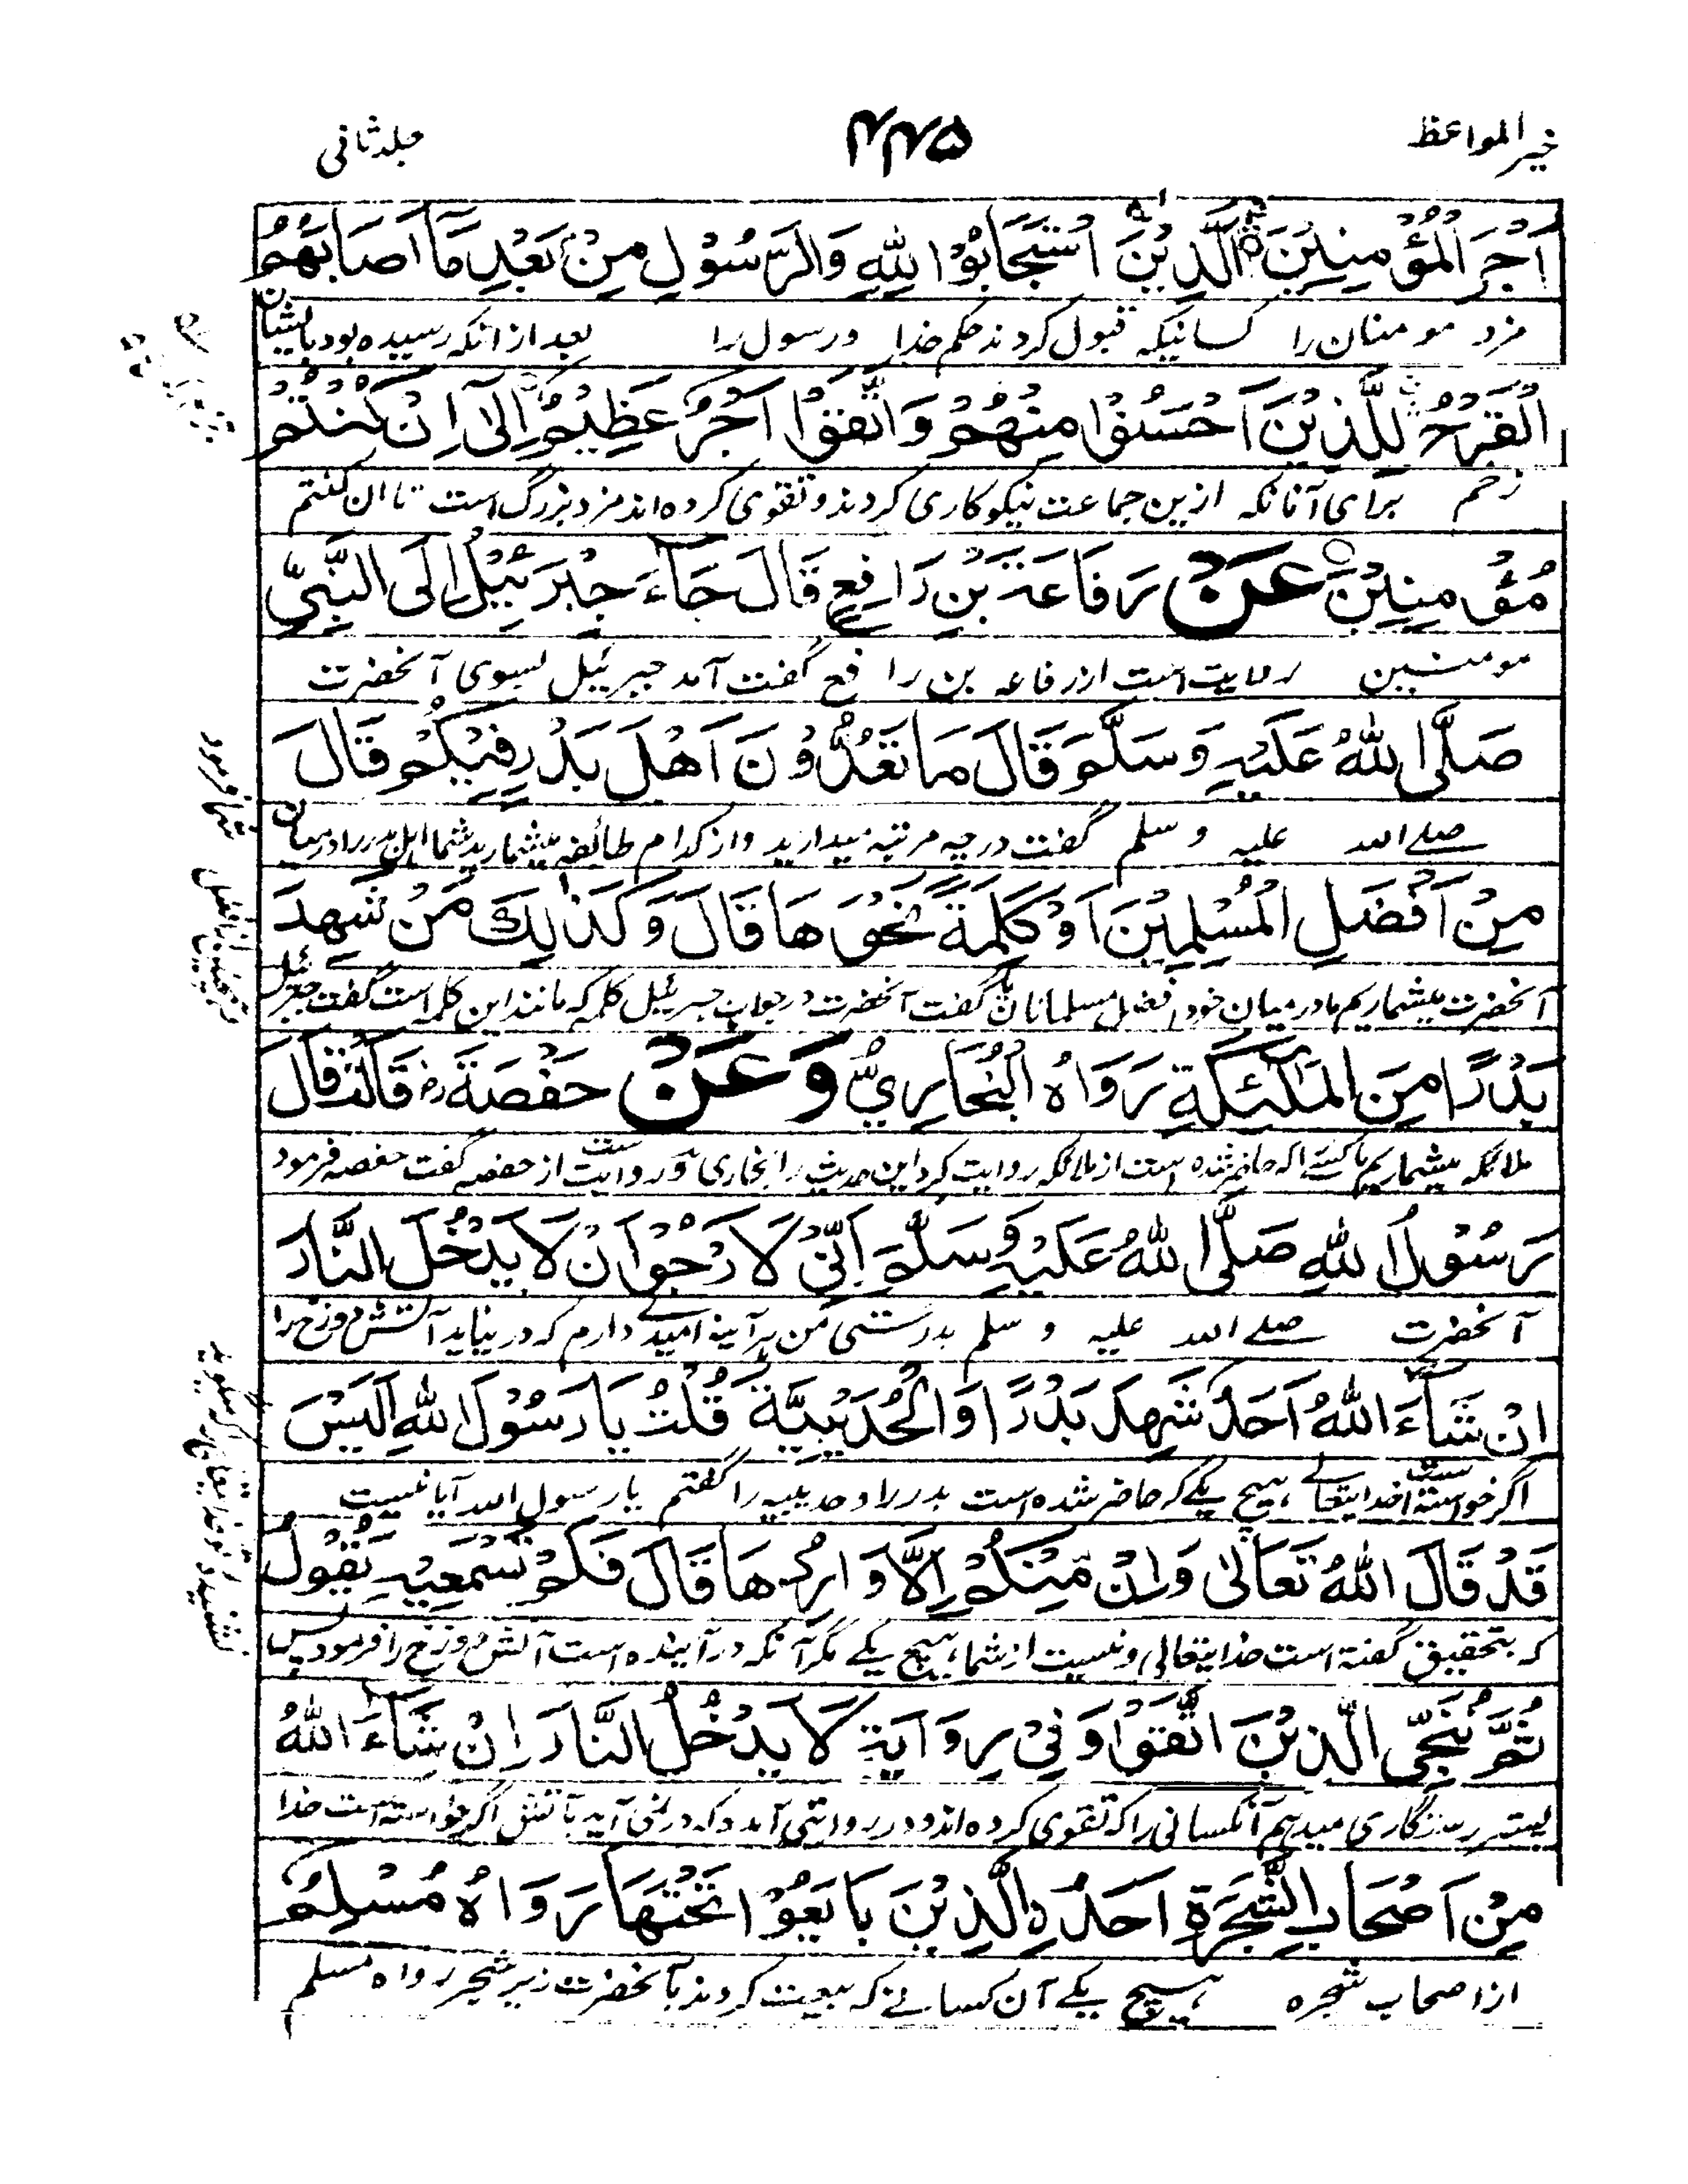 خیر المواعظ
۴۴۵
جلد ثانی
اَجْرَ الْمُؤْمِنِيْنَ الَّذِيْنَ اسْتَجَابُوْا لِلّٰهِ وَالرَّسُوْلِ مِنْ بَعْدِ مَا اَصَابَهُمُ
مزد مومنان را کسانیکہ قبول کردند حکم خدا و رسول را بعد ازانکہ رسیدہ بود بایشان
الْقَرْحُ لِلَّذِيْنَ اَحْسَنُوْا مِنْهُمْ وَاتَّقَوْا اَجْرٌ عَظِيْمٌ اِلٰى اِنْ كُنْتُمْ
زخم برای آنانکہ ازین جماعت نیکوکاری کردند و تقوی کردہ اند مزد بزرگ است تا ان کنتم
مُؤْمِنِيْنَ عَنْ رَفَاعَةَ بْنِ رَافِعٍ قَالَ جَاءَ جِبْرَئِيْلُ اِلَى النَّبِيِّ
مومنین روایت است از رفاعہ بن رافع گفت آمد جبرئیل بسوی آنحضرت
صَلَّى اللّٰهُ عَلَيْهِ وَسَلَّمَ قَالَ مَا تَعُدُّوْنَ اَهْلَ بَدْرٍ فِيْكُمْ قَالَ
صلے اللہ علیہ و سلم گفت در چہ مرتبہ میدارید و از کدام طائفہ میشمارید شما اہل بدر را درمیان
مِنْ اَفْضَلِ الْمُسْلِمِيْنَ اَوْ كَلِمَةً نَحْوَهَا قَالَ وَكَذٰلِكَ مَنْ شَهِدَ
آنحضرت میشماریم ما درمیان خود افضل مسلمانان یا گفت آنحضرت در جواب جبرئیل کلمہ کہ مانند این کلمہ است گفت جبرئیل
بَدْرًا مِنَ الْمَلٰئِكَةِ رَوَاهُ الْبُخَارِيُّ وَعَنْ حَفْصَةَ رض قَالَتْ قَالَ
ملائکہ میشماریم ما کسے را کہ حاضر شدہ است از ملائکہ روایت کرد این حدیث را بخاری و روایت است از حفصہ گفت حفصہ فرمود
رَسُوْلُ اللّٰهِ صَلَّى اللّٰهُ عَلَيْهِ وَسَلَّمَ اِنِّيْ لَاَرْجُوْ اَنْ لَا يَدْخُلَ النَّارَ
آنحضرت صلے اللہ علیہ و سلم بدرستی من ہر آینہ امید دارم کہ در نیاید آتش دوزخ را
اِنْ شَاءَ اللّٰهُ اَحَدٌ شَهِدَ بَدْرًا وَالْحُدَيْبِيَّةَ قُلْتُ يَا رَسُوْلَ اللّٰهِ اَلَيْسَ
اگر خواستہ است خدایتعالے ہیچ یکے کہ حاضر شدہ است بدر را و حدیبیہ را گفتم یا رسول اللہ آیا نیست
قَدْ قَالَ اللّٰهُ تَعَالٰى وَاِنْ مِّنْكُمْ اِلَّا وَارِدُهَا قَالَ فَلَمْ تَسْمَعِيْهِ يَقُوْلُ
کہ بتحقیق گفتہ است خدایتعالی و نیست از شما ہیچ یکے مگر آنکہ در آیندہ است آتش دوزخ را فرمود پس
ثُمَّ نُنَجِّي الَّذِيْنَ اتَّقَوْا وَفِيْ رِوَايَةٍ لَا يَدْخُلُ النَّارَ اِنْ شَاءَ اللّٰهُ
رستگاری میدہیم آنکسانی را کہ تقوی کردہ اند و در روایتی آمدہ کہ در نمی آید بآتش اگر خواستہ است خدا
مِنْ اَصْحَابِ الشَّجَرَةِ اَحَدٌ ۨالَّذِيْنَ بَايَعُوْا تَحْتَهَا رَوَاهُ مُسْلِمٌ
از اصحاب شجرہ ہیچ یکے آن کسانے کہ بیعت کردند بآنحضرت زیر شجر رواہ مسلم